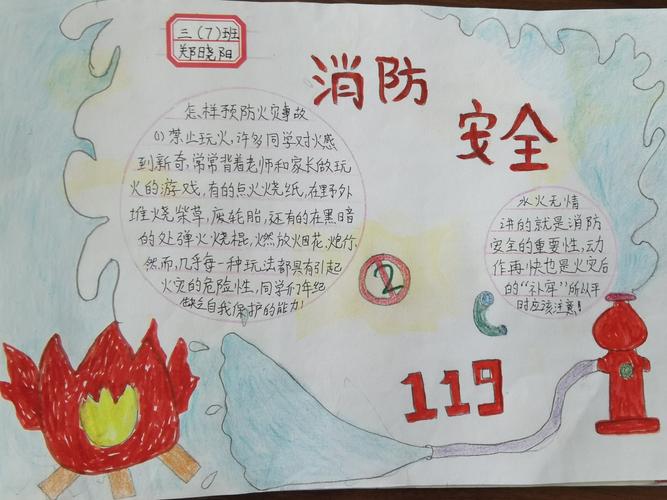 三(7)班
郑晓阳
消防
安全
怎样预防火灾事故
(1)禁止玩火,许多同学对火感
到新奇,常常背着老师和家长做玩
火的游戏,有的点火烧纸,在野外
堆烧柴草,废轮胎,还有的在黑暗
的处弹火烧棍,燃放烟花,炮竹,
然而,几乎每一种玩法都具有引起
火灾的危险性,同学们年纪
缺乏自我保护的能力!
水火无情
讲的就是消防
安全的重要性,动
作再快也是火灾后
的“补牢”所以平
时应该注意!
2
119